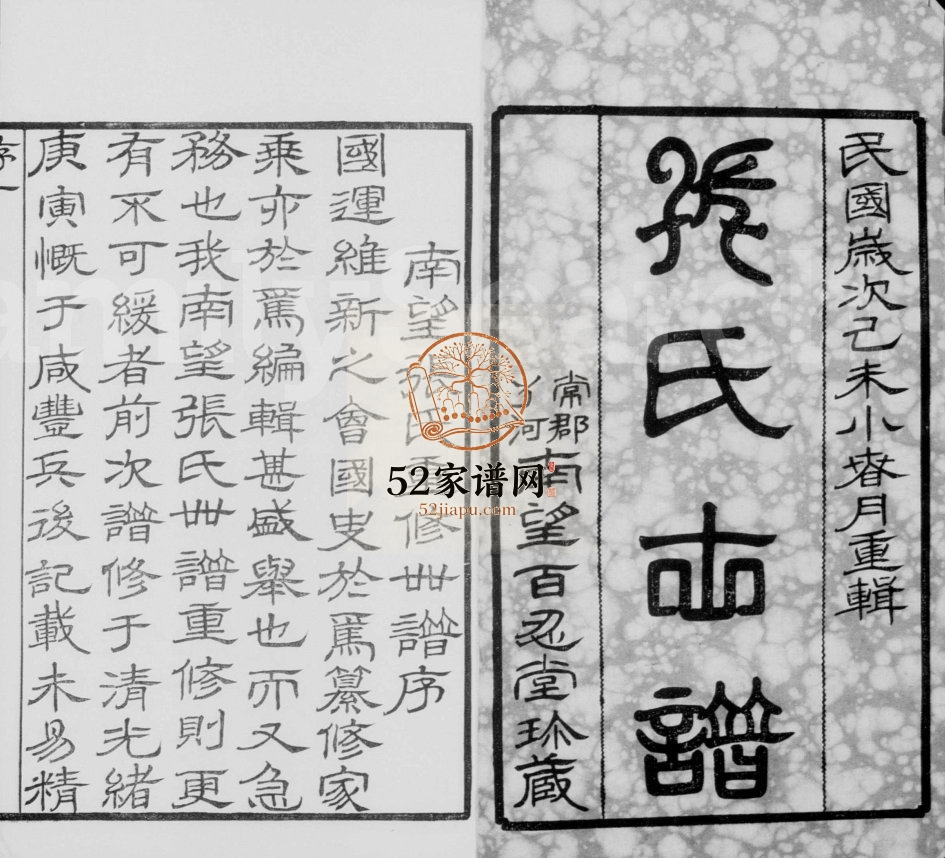 民國歲次己未小春月重輯
張氏世譜
常郡
河
南望百忍堂珍藏
南望張氏重修世譜序
國運維新之會國史於焉纂修家
乘亦於焉編輯甚盛舉也而又急
務也我南望張氏世譜重修則更
有不可緩者前次譜修于清光緒
庚寅慨于咸豐兵後記載未易精
序一
52家谱网
52jiapu.com